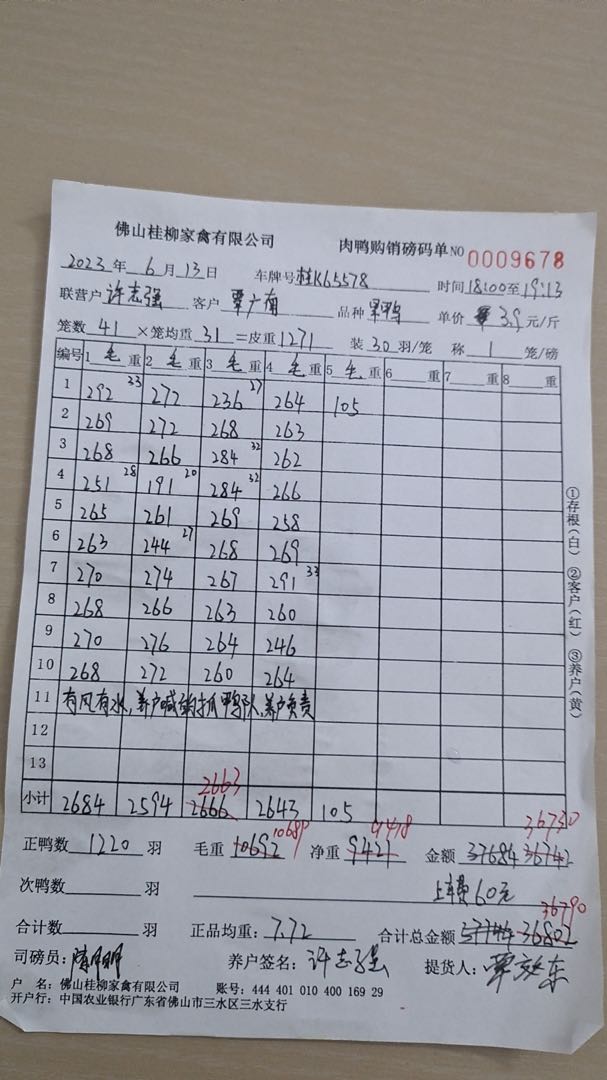 佛山桂柳家禽有限公司 肉鸭购销磅码单 NO 0009678
2023年 6月 13日 车牌号 桂K65578 时间 18:00至19:13
联营户 许志强 客户 覃广南 品种 单价 3.9 元/斤
笼数 41 ×笼均重 31 =皮重 1271 装 30 羽/笼 称 1 笼/磅
编号 1 毛 重 2 毛 重 3 毛 重 4 毛 重 5 毛 重 6 重 7 重 8 重
1 292 33 272 236 27 264 105
2 269 272 268 263
3 268 266 284 32 262
4 251 28 191 20 284 32 266
5 265 261 269 258
6 263 244 27 268 269
7 270 274 267 291 33
8 268 266 263 260
9 270 276 264 246
10 268 272 260 264
11 有风有水,养户喊的抓鸭队,养户负责
12
13
2663
小计 2684 2594 2666 2643 105
10689 9418 36730
正鸭数 1220 羽 毛重 10692 净重 9421 金额 37684 36742
次鸭数 羽 上车费60元
36790
合计数 羽 正品均重: 7.72 合计总金额 37744 36802
司磅员: 养户签名: 许志强 提货人: 覃东
户 名: 佛山桂柳家禽有限公司 账号: 444 401 010 400 169 29
开户行: 中国农业银行广东省佛山市三水区三水支行
①存根(白) ②客户(红) ③养户(黄)